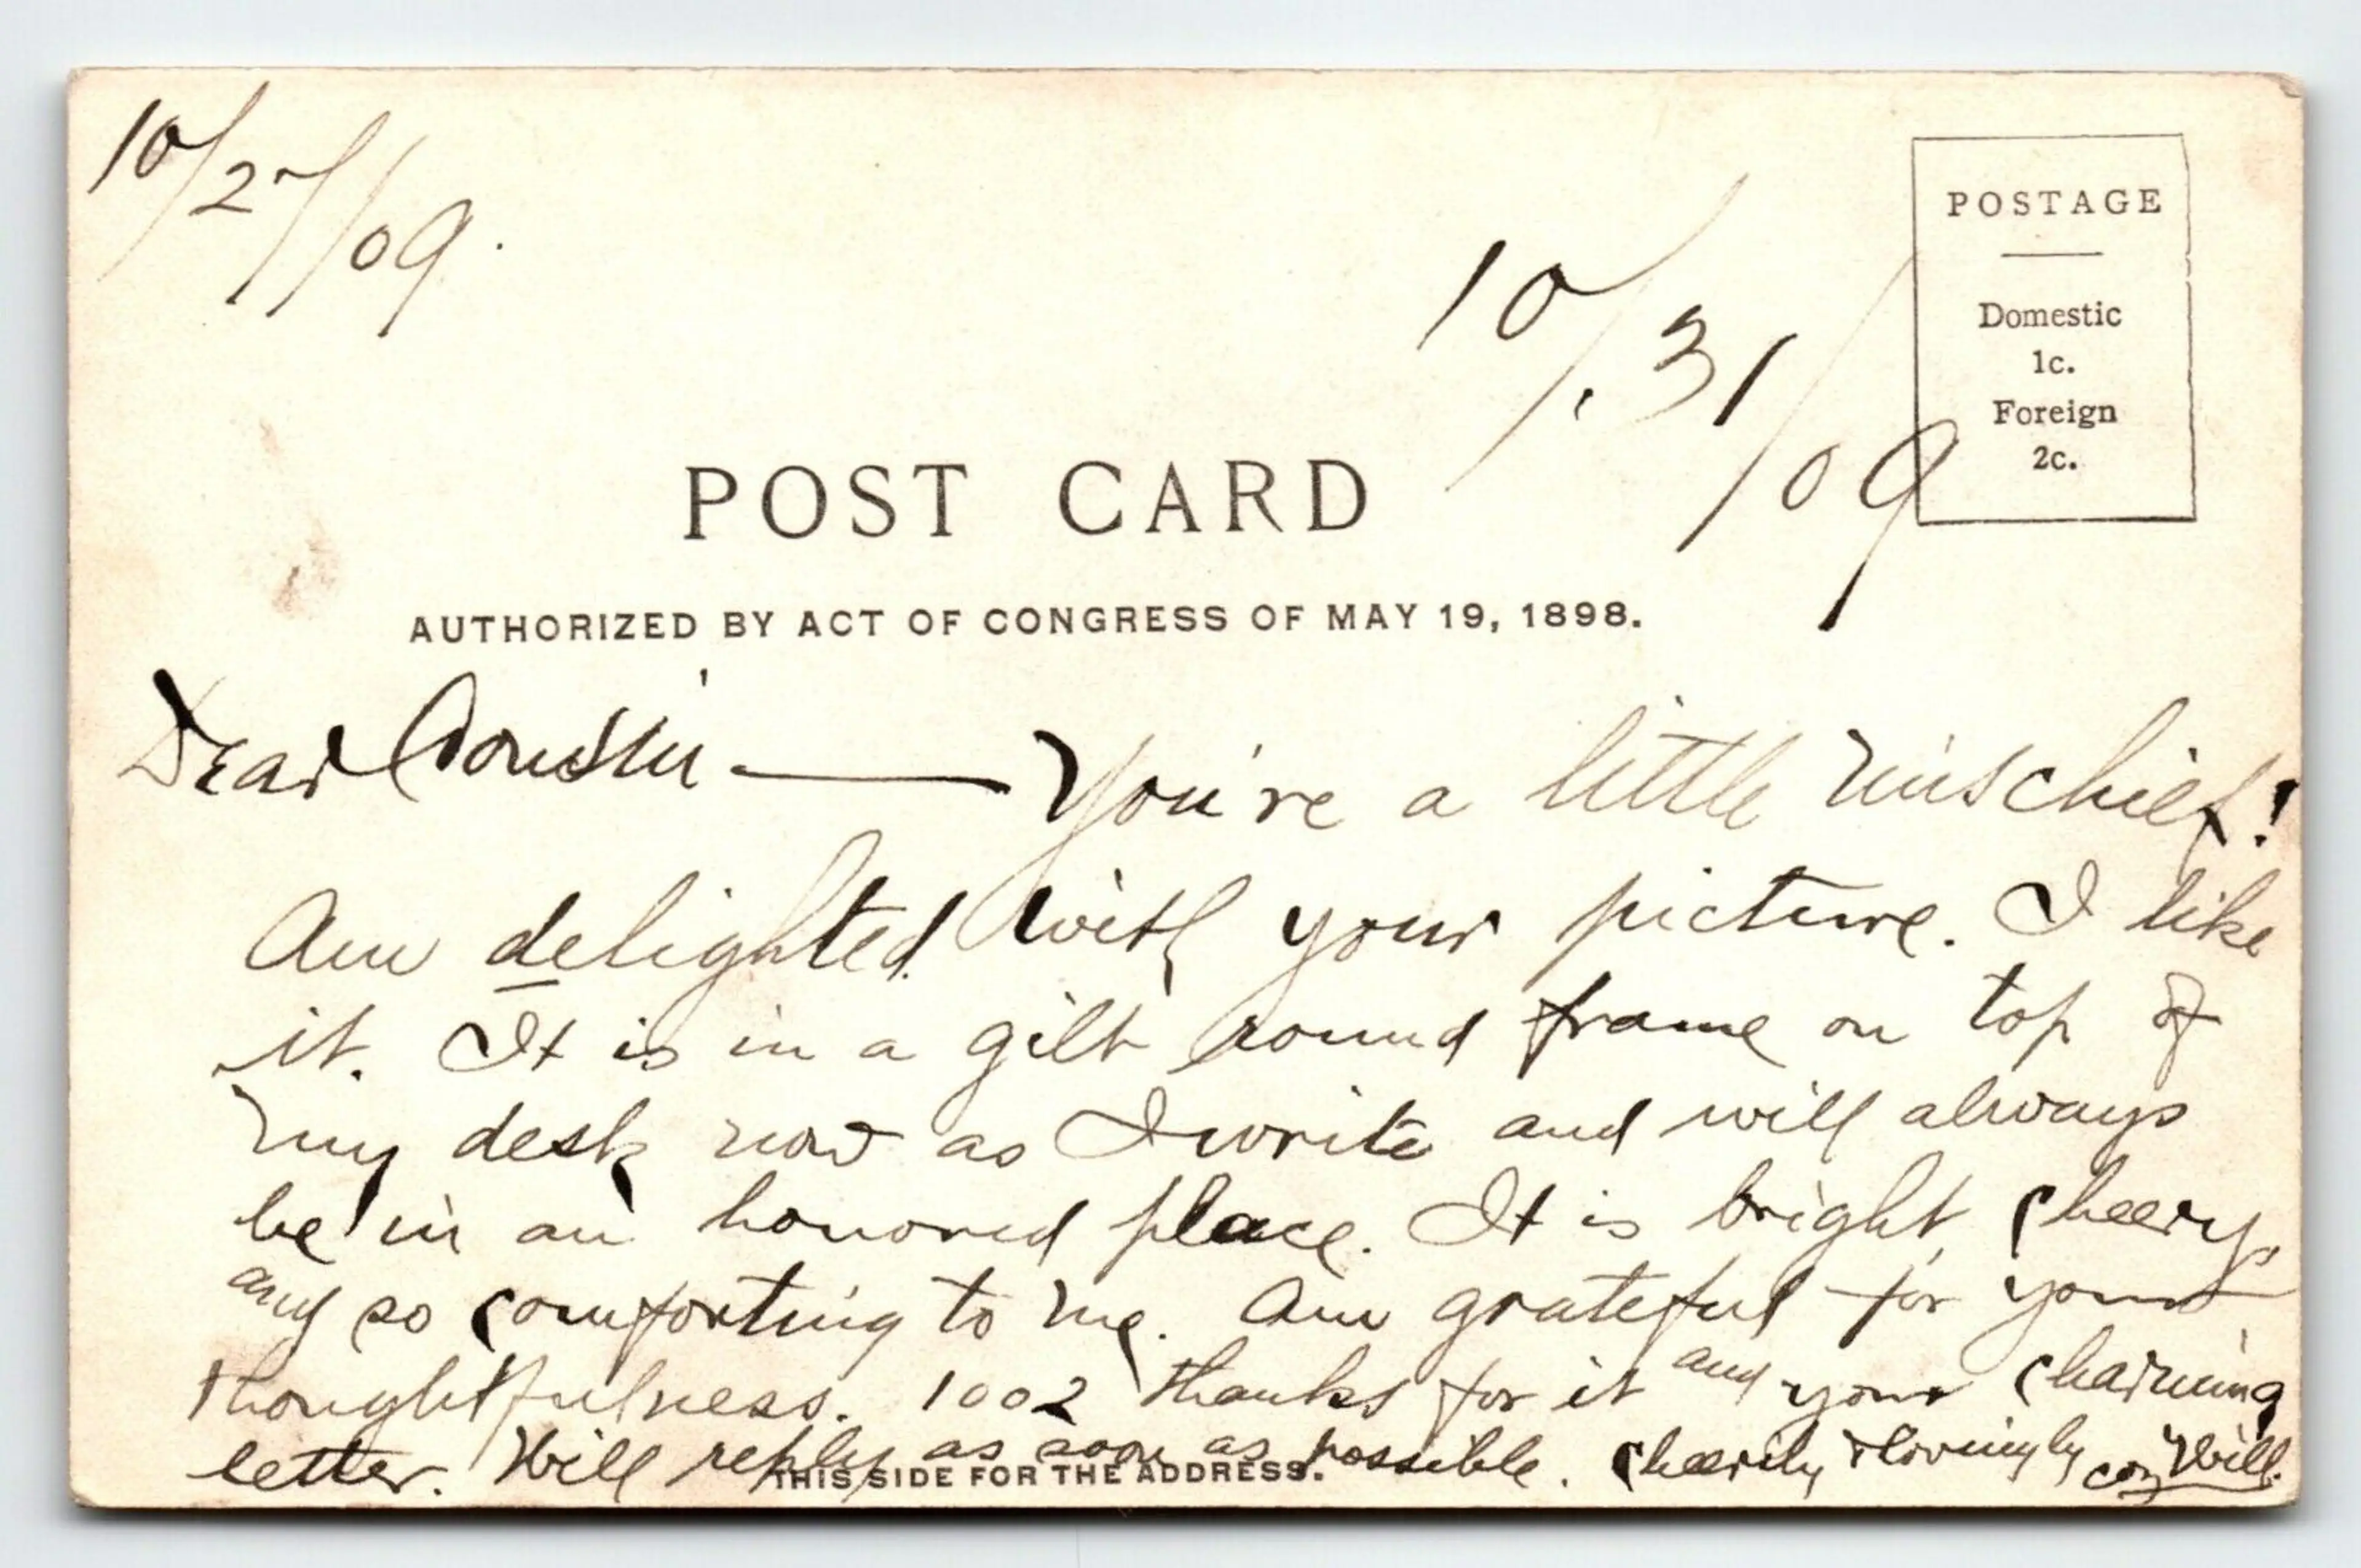 10/27/09.
10/31/09
POSTAGE
Domestic
1c.
Foreign
2c.
POST CARD
AUTHORIZED BY ACT OF CONGRESS OF MAY 19, 1898.
Dear Cousin — You're a little mischief!
Am delighted with your picture. I like
it. It is in a gilt round frame on top of
my desk now as I write and will always
be in an honored place. It is bright, cheery,
and so comforting to me. Am grateful for your
thoughtfulness. 1002 thanks for it and your charming
letter. Will reply as soon as possible. Cheerily & lovingly coz Will.
THIS SIDE FOR THE ADDRESS.